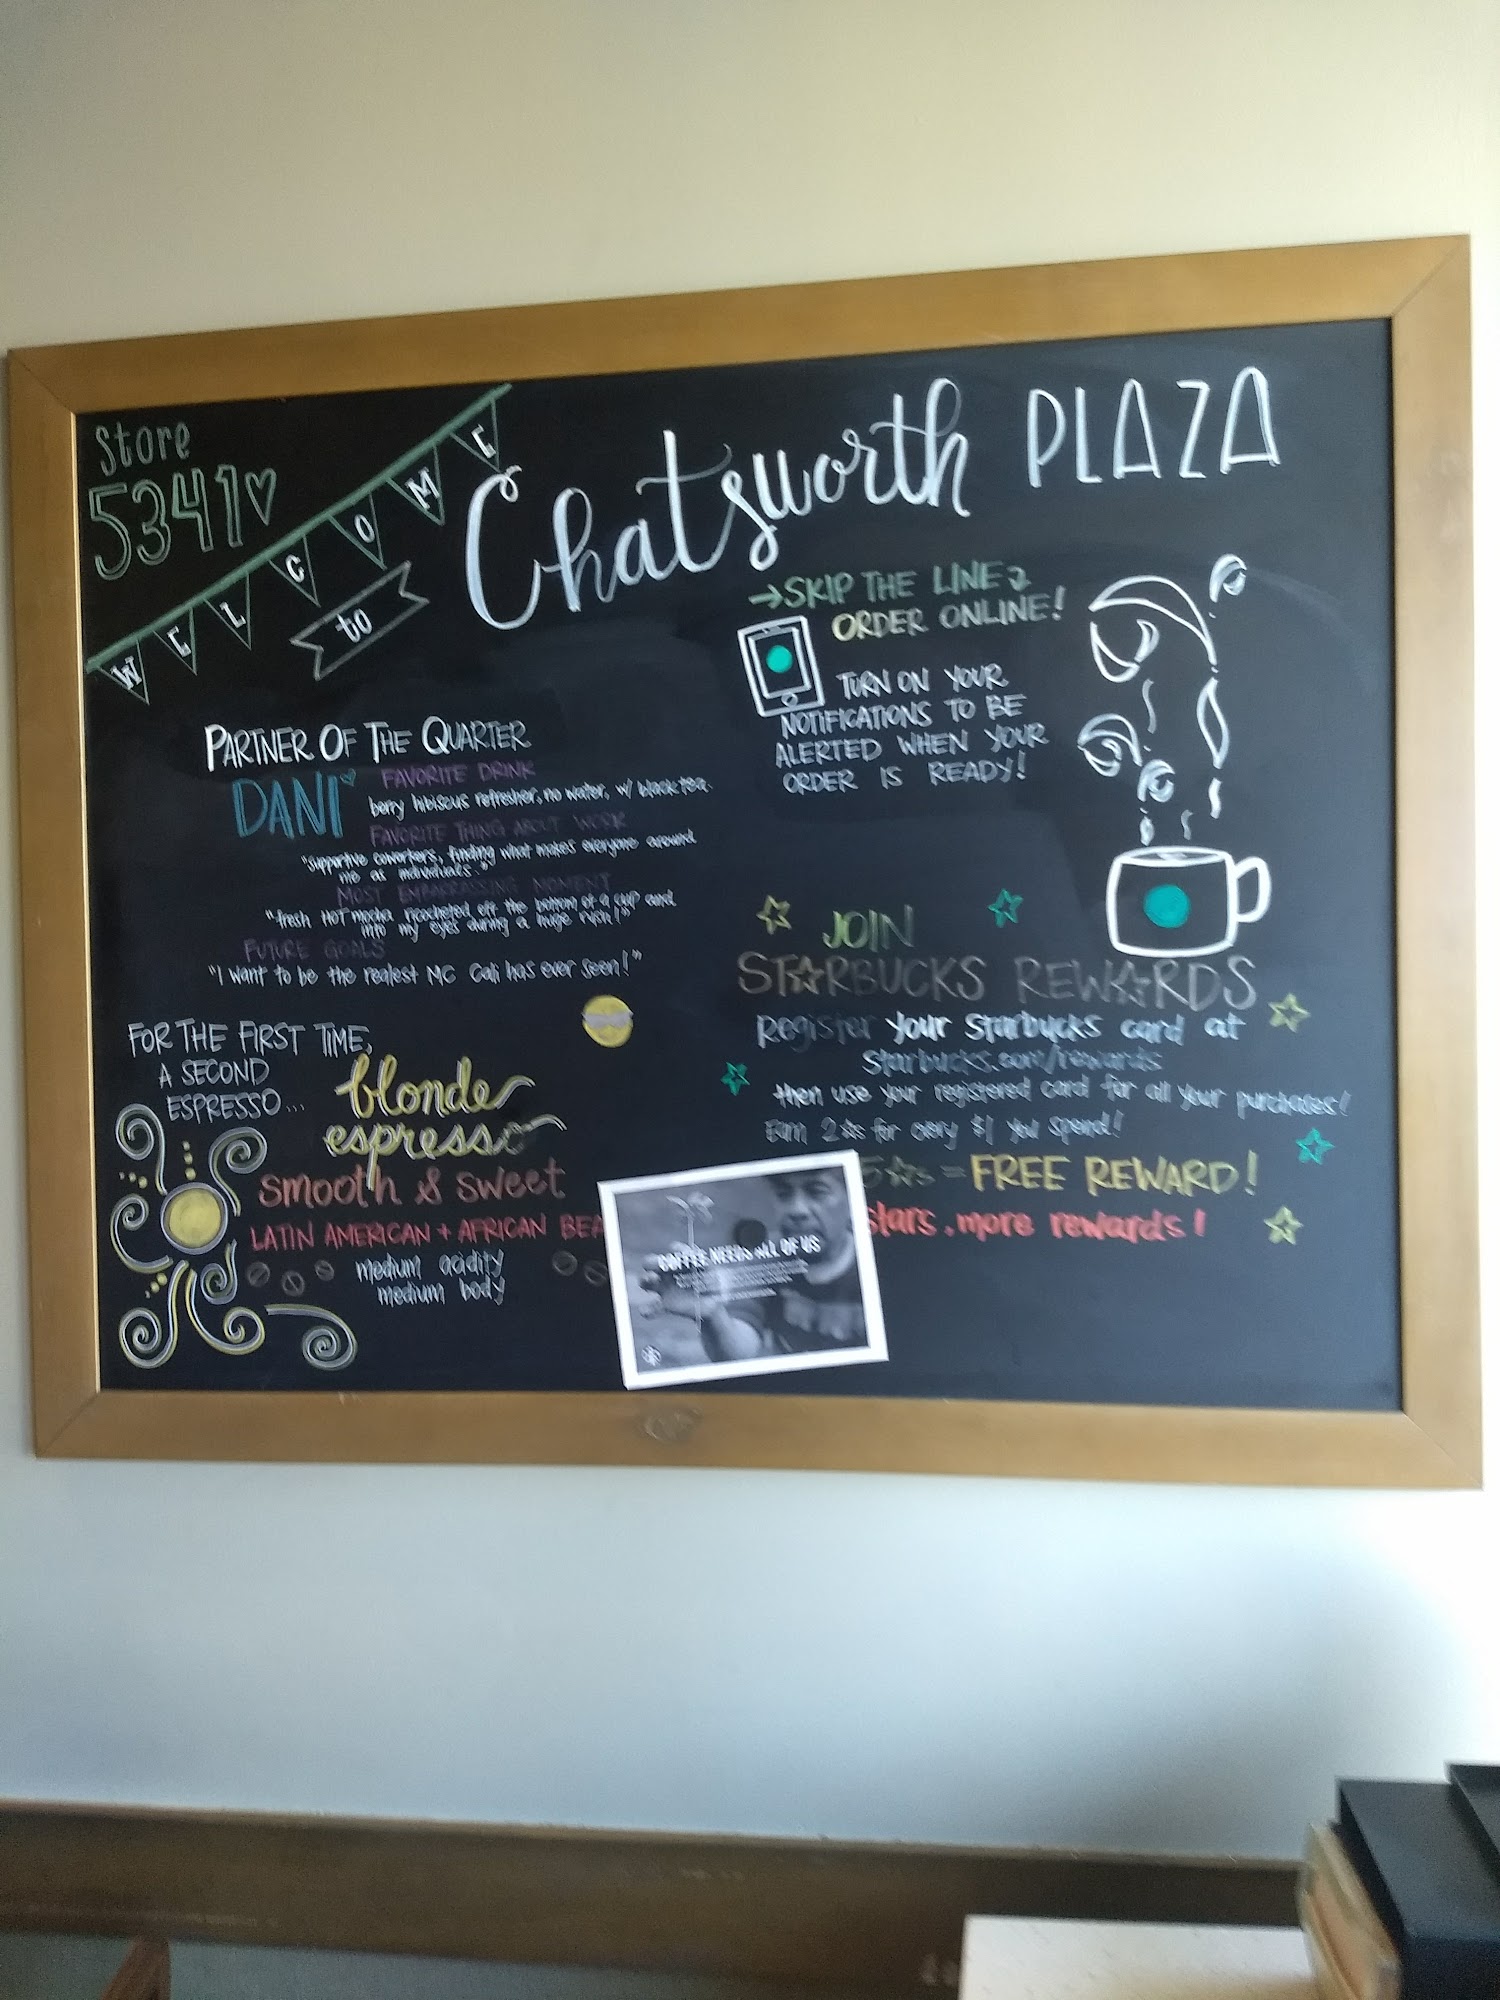 Store
5341
WELCOME
to
Chatsworth PLAZA
PARTNER OF THE QUARTER
DANI
FAVORITE DRINK
berry hibiscus refresher, no water, w/ black tea.
FAVORITE THING ABOUT WORK
"Supportive coworkers, finding what makes everyone around
me as individuals."
MOST EMBARRASSING MOMENT
"fresh HOT mocha ricocheted off the bottom of a cup and
into my eyes during a huge rush!"
FUTURE GOALS
"I want to be the realest MC Cali has ever seen!"
FOR THE FIRST TIME,
A SECOND
ESPRESSO...
blonde
espresso
smooth & sweet
LATIN AMERICAN + AFRICAN BEA
medium acidity
medium body
→SKIP THE LINE
ORDER ONLINE!
TURN ON YOUR
NOTIFICATIONS TO BE
ALERTED WHEN YOUR
ORDER IS READY!
JOIN
ST☆RBUCKS REW☆RDS
Register your Starbucks card at
Starbucks.com/rewards
then use your registered card for all your purchases!
Earn 2☆s for every $1 you spend!
5☆s = FREE REWARD!
stars, more rewards!
COFFEE NEEDS ALL OF US